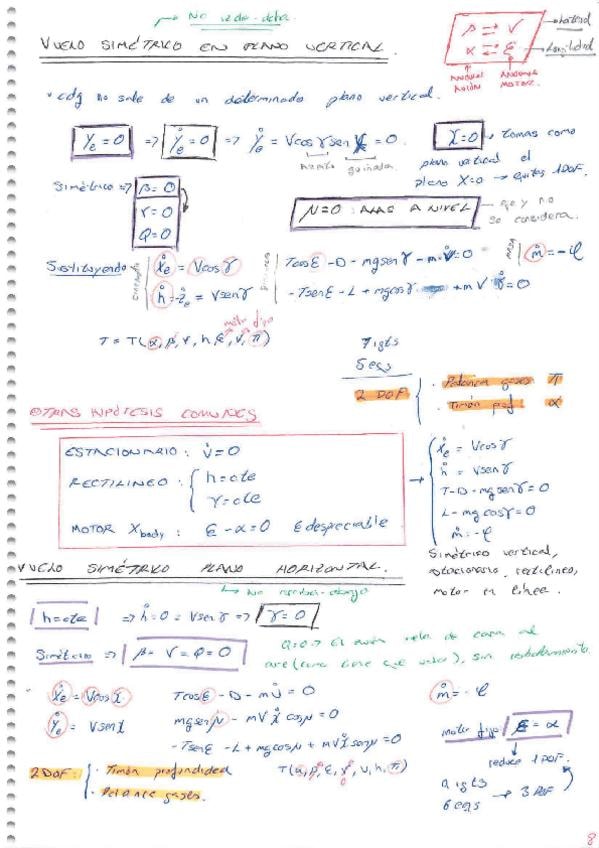 No izda-dcha.
VUELO SIMÉTRICO EN PLANO VERTICAL.
β ⇄ V → Lateral
α ⇄ ε → Longitud
ANGULO ACIÓN
ANGULO MOTOR
• cdg no sale de un determinado plano vertical.
Ye = 0 ⇒ Ẏe = 0 ⇒ Ẏe = V cos γ sen χ = 0.
χ = 0 → Tomas como plano vertical el plano χ=0 → quitas 1 DOF.
asiento guiñada
Simétrico ⇒ β = 0
ν = 0
Q = 0
μ = 0 : ALAS A NIVEL
eje y no se considera.
Sustituyendo
ẋe = V cos γ
ḣ = -że = V sen γ
T cos ε - D - mg sen γ - m V̇ = 0
-T sen ε - L + mg cos γ + m V γ̇ = 0
MASA
ṁ = -φ
T = T(α, β, ν, h, ε, V, π)
motor fijo
7 igts
5 ecs
2 DOF
· Potencia gases π
· Timón prof. α
OTRAS HIPÓTESIS COMUNES
ESTACIONARIO : V̇ = 0
RECTILINEO : h = cte
γ = cte
MOTOR Xbody : ε - α = 0 ε despreciable
ẋe = V cos γ
ḣ = V sen γ
T - D - mg sen γ = 0
L - mg cos γ = 0
ṁ = -φ
Simétrico vertical,
estacionario, rectilíneo,
motor en línea.
VUELO SIMÉTRICO PLANO HORIZONTAL.
No arriba-abajo
h = cte ⇒ ḣ = 0 = V sen γ ⇒ γ = 0
Simétrico ⇒ β = ν = Q = 0
Q = 0 ⇒ El avión vuela de cara al aire (cara tiene que volar), sin resbalamiento
ẋe = V cos χ
ẏe = V sen χ
T cos ε - D - m V̇ = 0
mg sen μ - m V χ̇ cos μ = 0
-T sen ε - L + mg cos μ + m V χ̇ sen μ = 0
ṁ = -φ
motor fijo ε = α
reduce 1 DOF.
2 DOF:
· Timón profundidad
· Palanca gases.
T(α, β, ε, ν, V, h, π)
9 igts
6 ecs → 3 DOF
8